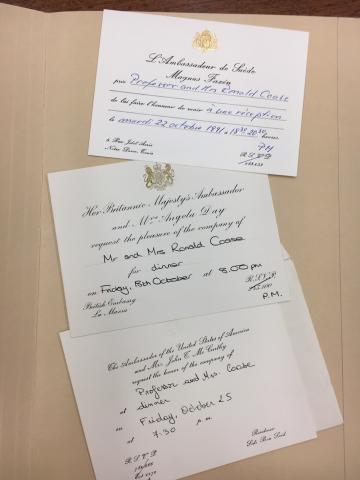 L'Ambassadeur de Suède
Magnus Faxén
prie Professor and Mrs Ronald Coase
de lui faire l'honneur de venir à une réception
le mardi 22 octobre 1991 à 18³⁰-20³⁰ heures
PM
R.S.V.P.
Notre Dame, Tunis
Her Britannic Majesty's Ambassador
and Mrs Angela Day
request the pleasure of the company of
Mr and Mrs Ronald Coase
for dinner
on Friday, 18th October at 8.00 pm
British Embassy
La Marsa
R.S.V.P.
P.M.
The Ambassador of the United States of America
and Mrs. John T. McCarthy
request the honor of the company of
Professor and Mrs. Coase
at dinner
on Friday, October 25
at 7:30 p.m.
R.S.V.P.
Residence
Sidi Bou Said